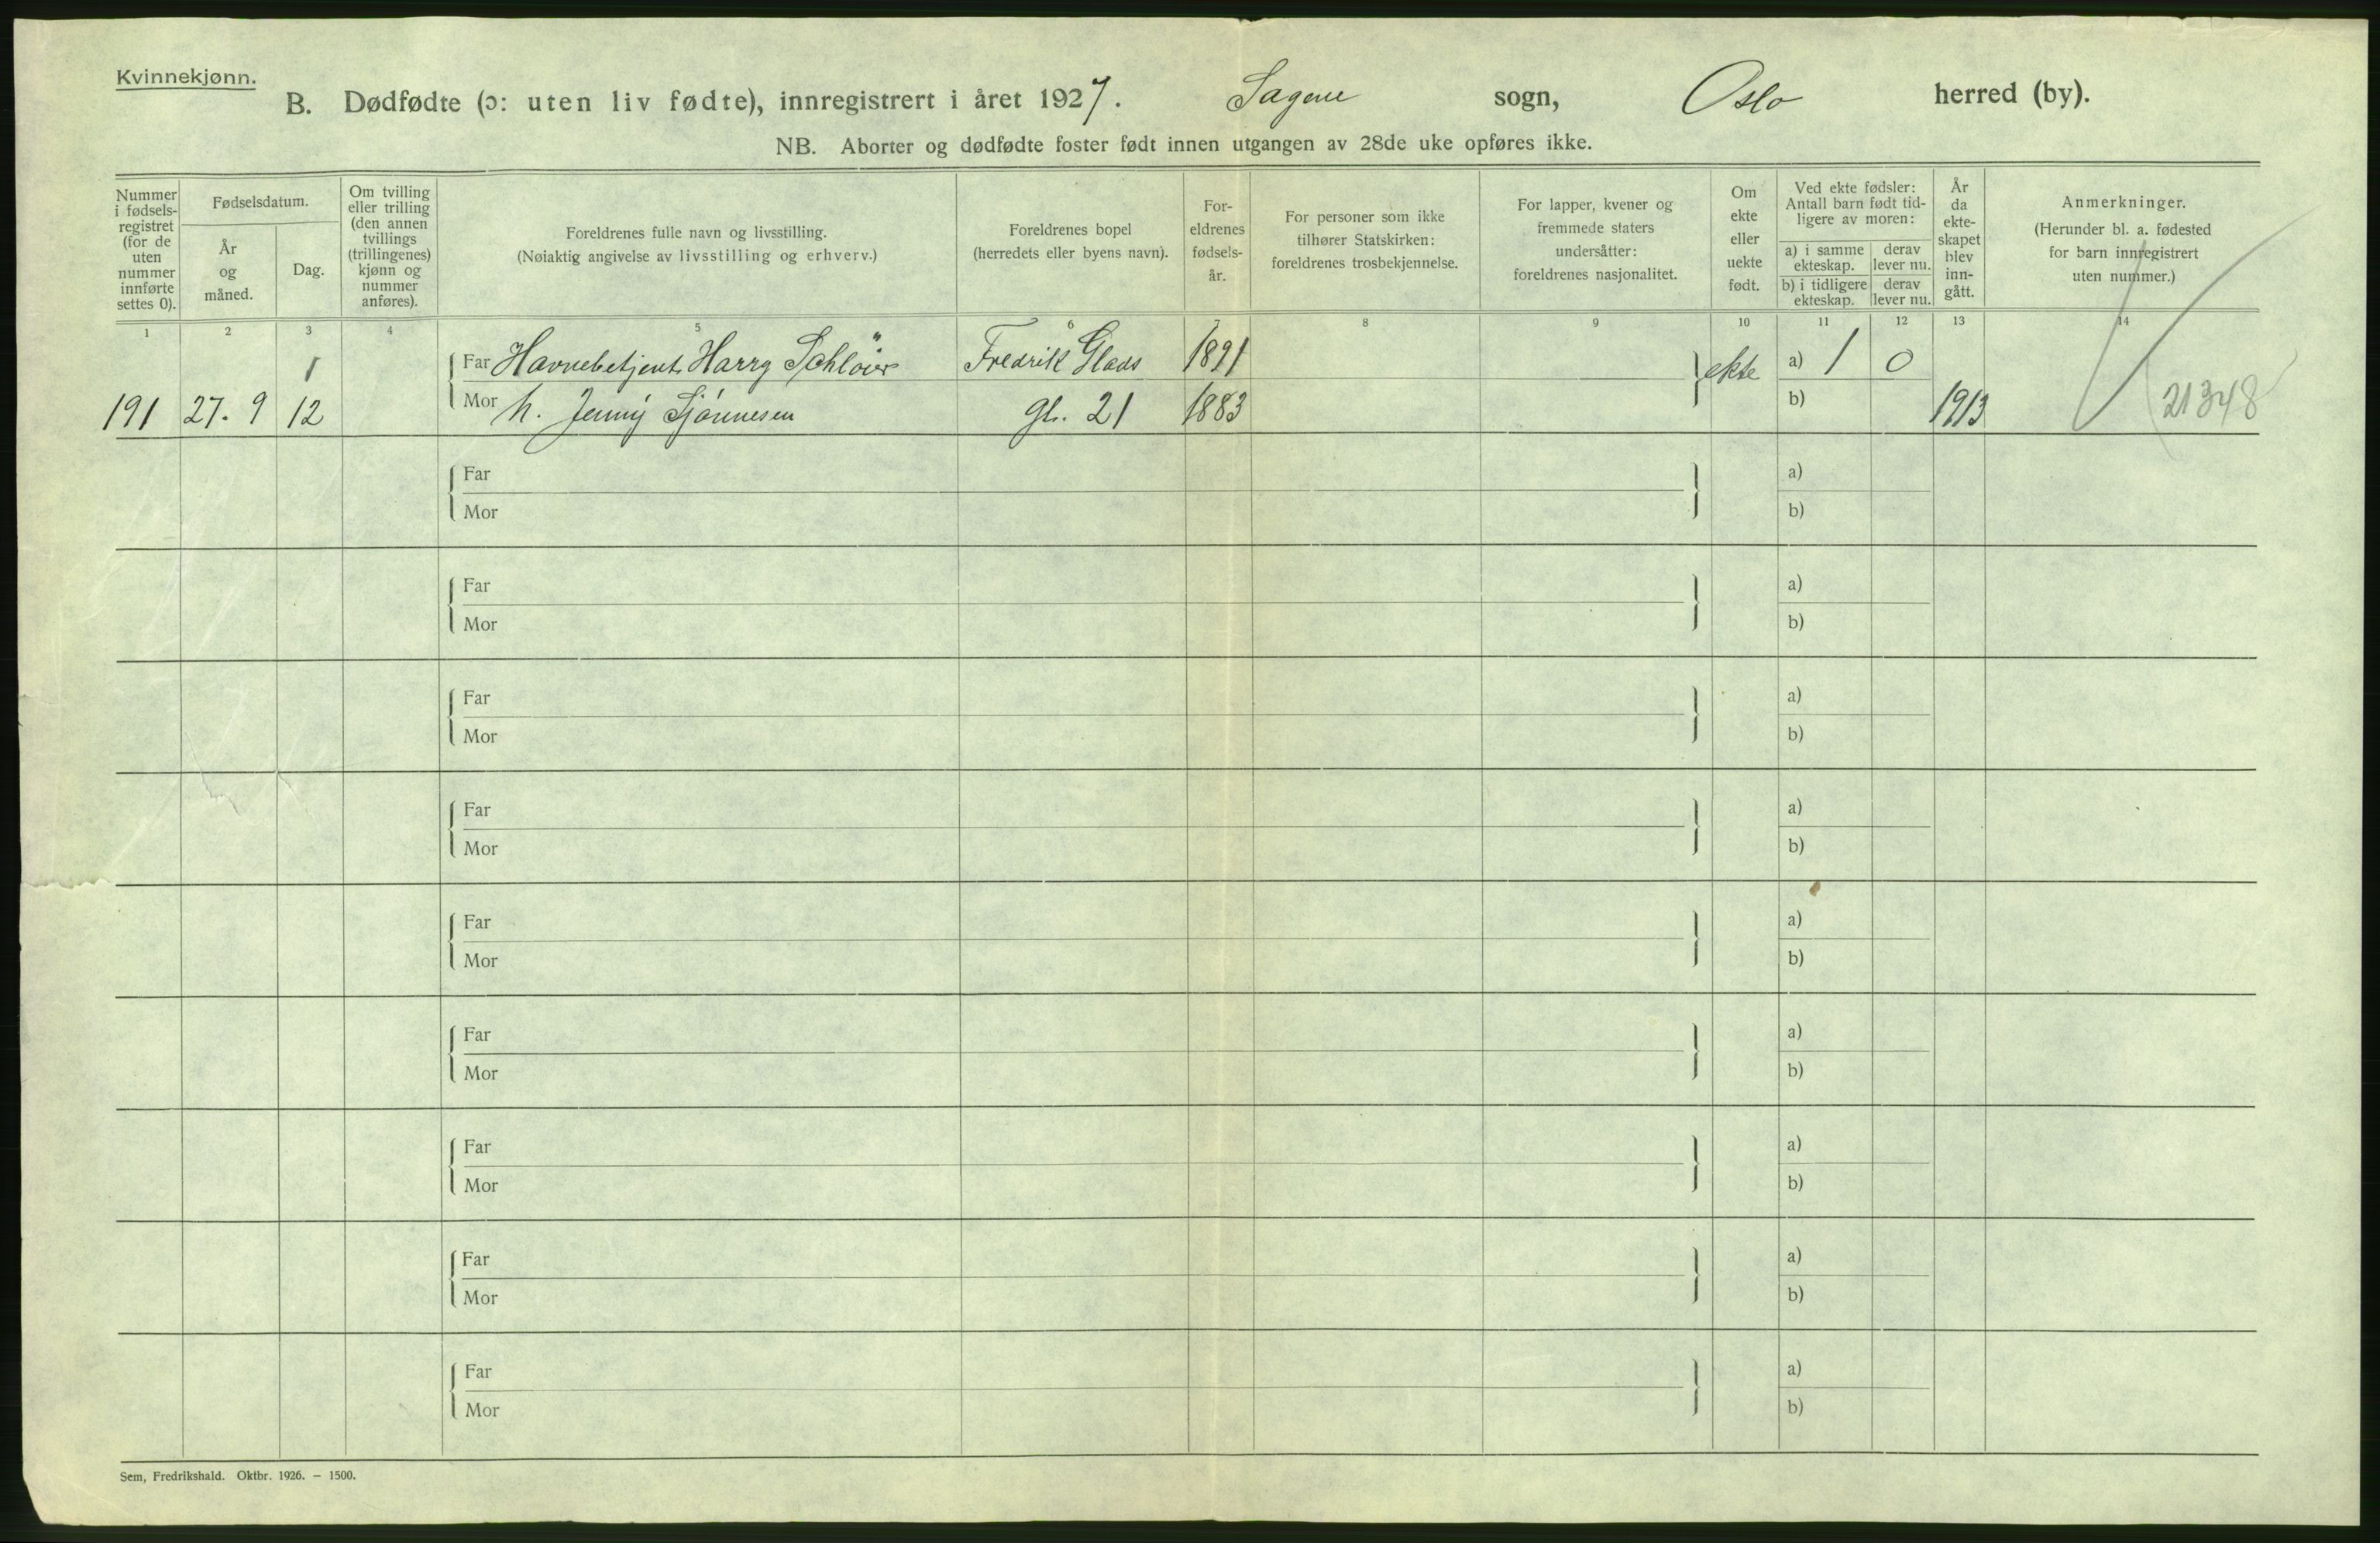 Kvinnekjønn.
B. Dødfødte (ɔ: uten liv fødte), innregistrert i året 1927. Sagene sogn, Oslo herred (by).
NB. Aborter og dødfødte foster født innen utgangen av 28de uke opføres ikke.
Nummer i fødsels- registret (for de uten nummer innførte settes 0).
Fødselsdatum.
År og måned.
Dag.
Om tvilling eller trilling (den annen tvillings (trillingenes) kjønn og nummer anføres).
Foreldrenes fulle navn og livsstilling.
(Nøiaktig angivelse av livsstilling og erhverv.)
Foreldrenes bopel
(herredets eller byens navn).
For- eldrenes fødsels- år.
For personer som ikke tilhører Statskirken: foreldrenes trosbekjennelse.
For lapper, kvener og fremmede staters undersåtter: foreldrenes nasjonalitet.
Om ekte eller uekte født.
Ved ekte fødsler: Antall barn født tid- ligere av moren:
a) i samme ekteskap. derav lever nu.
b) i tidligere ekteskap. derav lever nu.
År da ekte- skapet blev inn- gått.
Anmerkninger.
(Herunder bl. a. fødested for barn innregistrert uten nummer.)
1 2 3 4 5 6 7 8 9 10 11 12 13 14
1 Far Havnebetjent Harry Schløier Fredrik Glads 1891 ekte a) 1 0
191 27. 9 12 Mor h. Jenny Sjønnesen gt. 21 1883 b) 1913 21348
Far a)
Mor b)
Far a)
Mor b)
Far a)
Mor b)
Far a)
Mor b)
Far a)
Mor b)
Far a)
Mor b)
Far a)
Mor b)
Far a)
Mor b)
Far a)
Mor b)
Sem, Fredrikshald. Oktbr. 1926. – 1500.